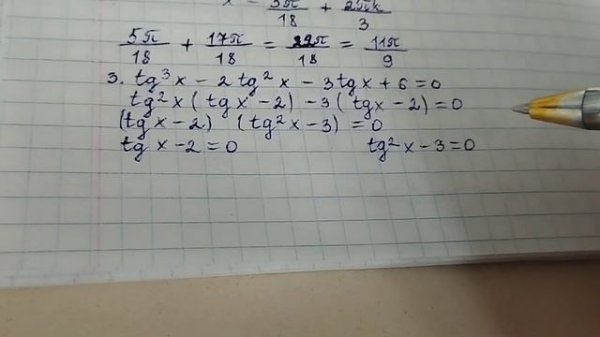 x = 5π/18 + 2πk/3
5π/18 + 17π/18 = 22π/18 = 11π/9
3. tg³x − 2tg²x − 3tgx + 6 = 0
tg²x (tgx − 2) − 3(tgx − 2) = 0
(tgx − 2) (tg²x − 3) = 0
tgx − 2 = 0 tg²x − 3 = 0